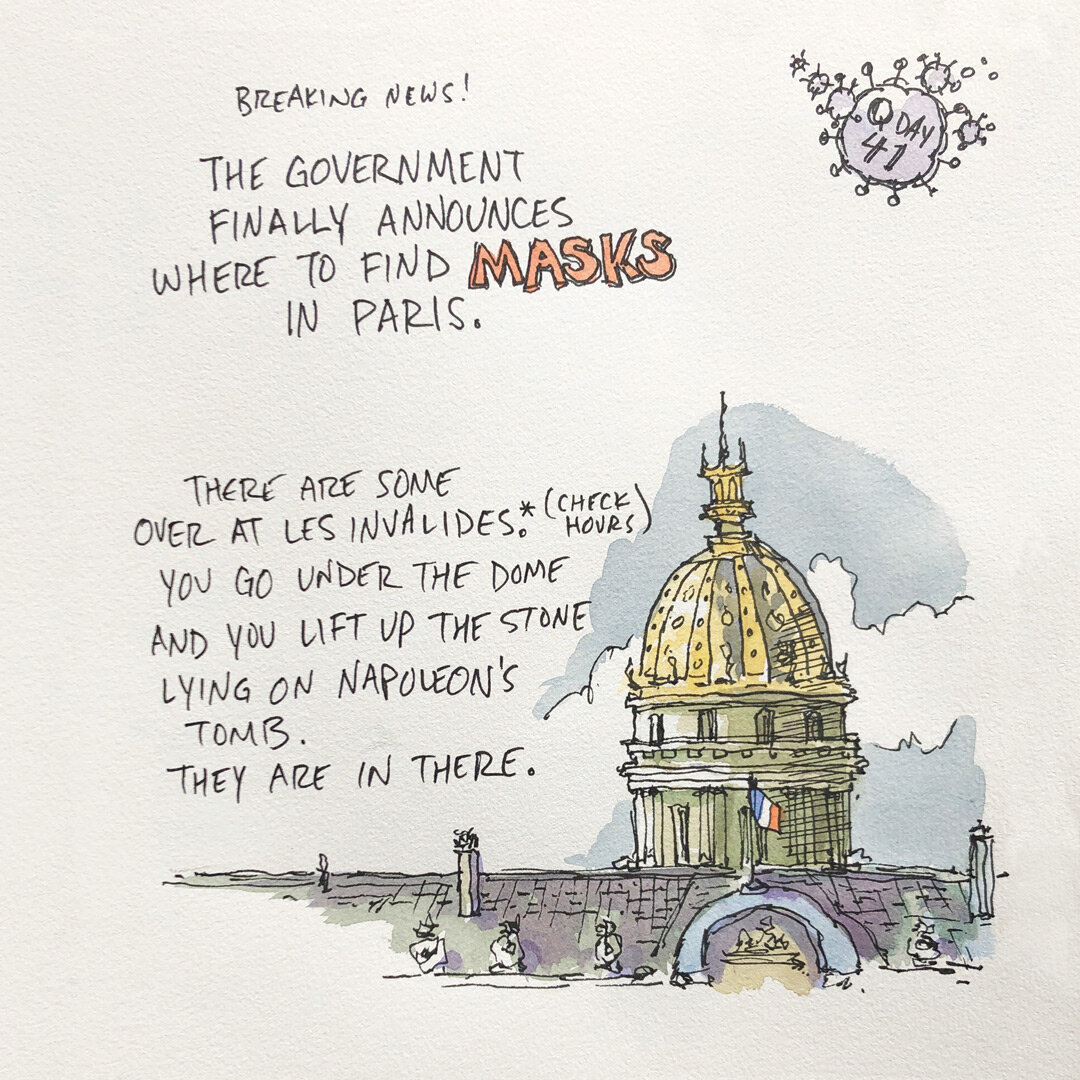 BREAKING NEWS!
Q DAY
41
THE GOVERNMENT
FINALLY ANNOUNCES
WHERE TO FIND MASKS
IN PARIS.
THERE ARE SOME
OVER AT LES INVALIDES.* (CHECK HOURS)
YOU GO UNDER THE DOME
AND YOU LIFT UP THE STONE
LYING ON NAPOLEON'S
TOMB.
THEY ARE IN THERE.